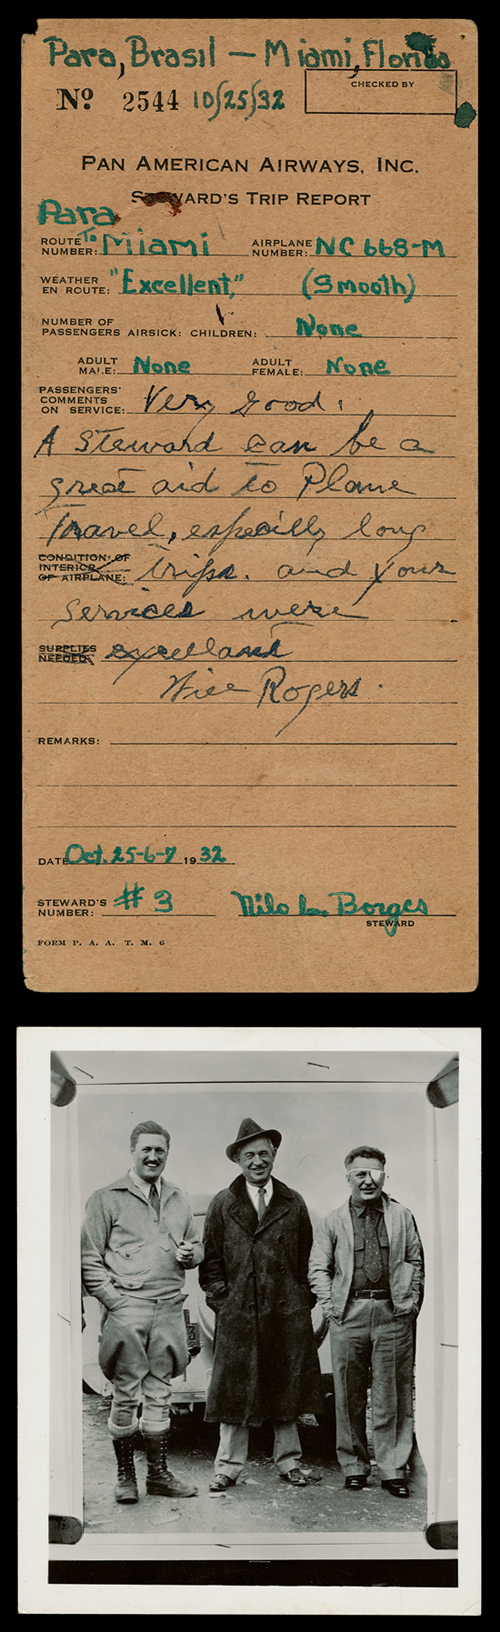 Para, Brasil — Miami, Florida
CHECKED BY
No 2544 10/25/32
PAN AMERICAN AIRWAYS, INC.
STEWARD'S TRIP REPORT
Para
ROUTE NUMBER: To Miami AIRPLANE NUMBER: NC 668-M
WEATHER EN ROUTE: "Excellent," (Smooth)
NUMBER OF PASSENGERS AIRSICK: CHILDREN: None
ADULT MALE: None ADULT FEMALE: None
PASSENGERS' COMMENTS ON SERVICE: Very good.
A Steward can be a
great aid to Plane
Travel, especially long
CONDITION OF INTERIOR OF AIRPLANE: trips. and your
Services were
SUPPLIES NEEDED: excelland
Will Rogers.
REMARKS:
DATE Oct. 25-6-7 1932
STEWARD'S NUMBER: #3 Nilo L. Borges
STEWARD
FORM P. A. A. T. M. 6